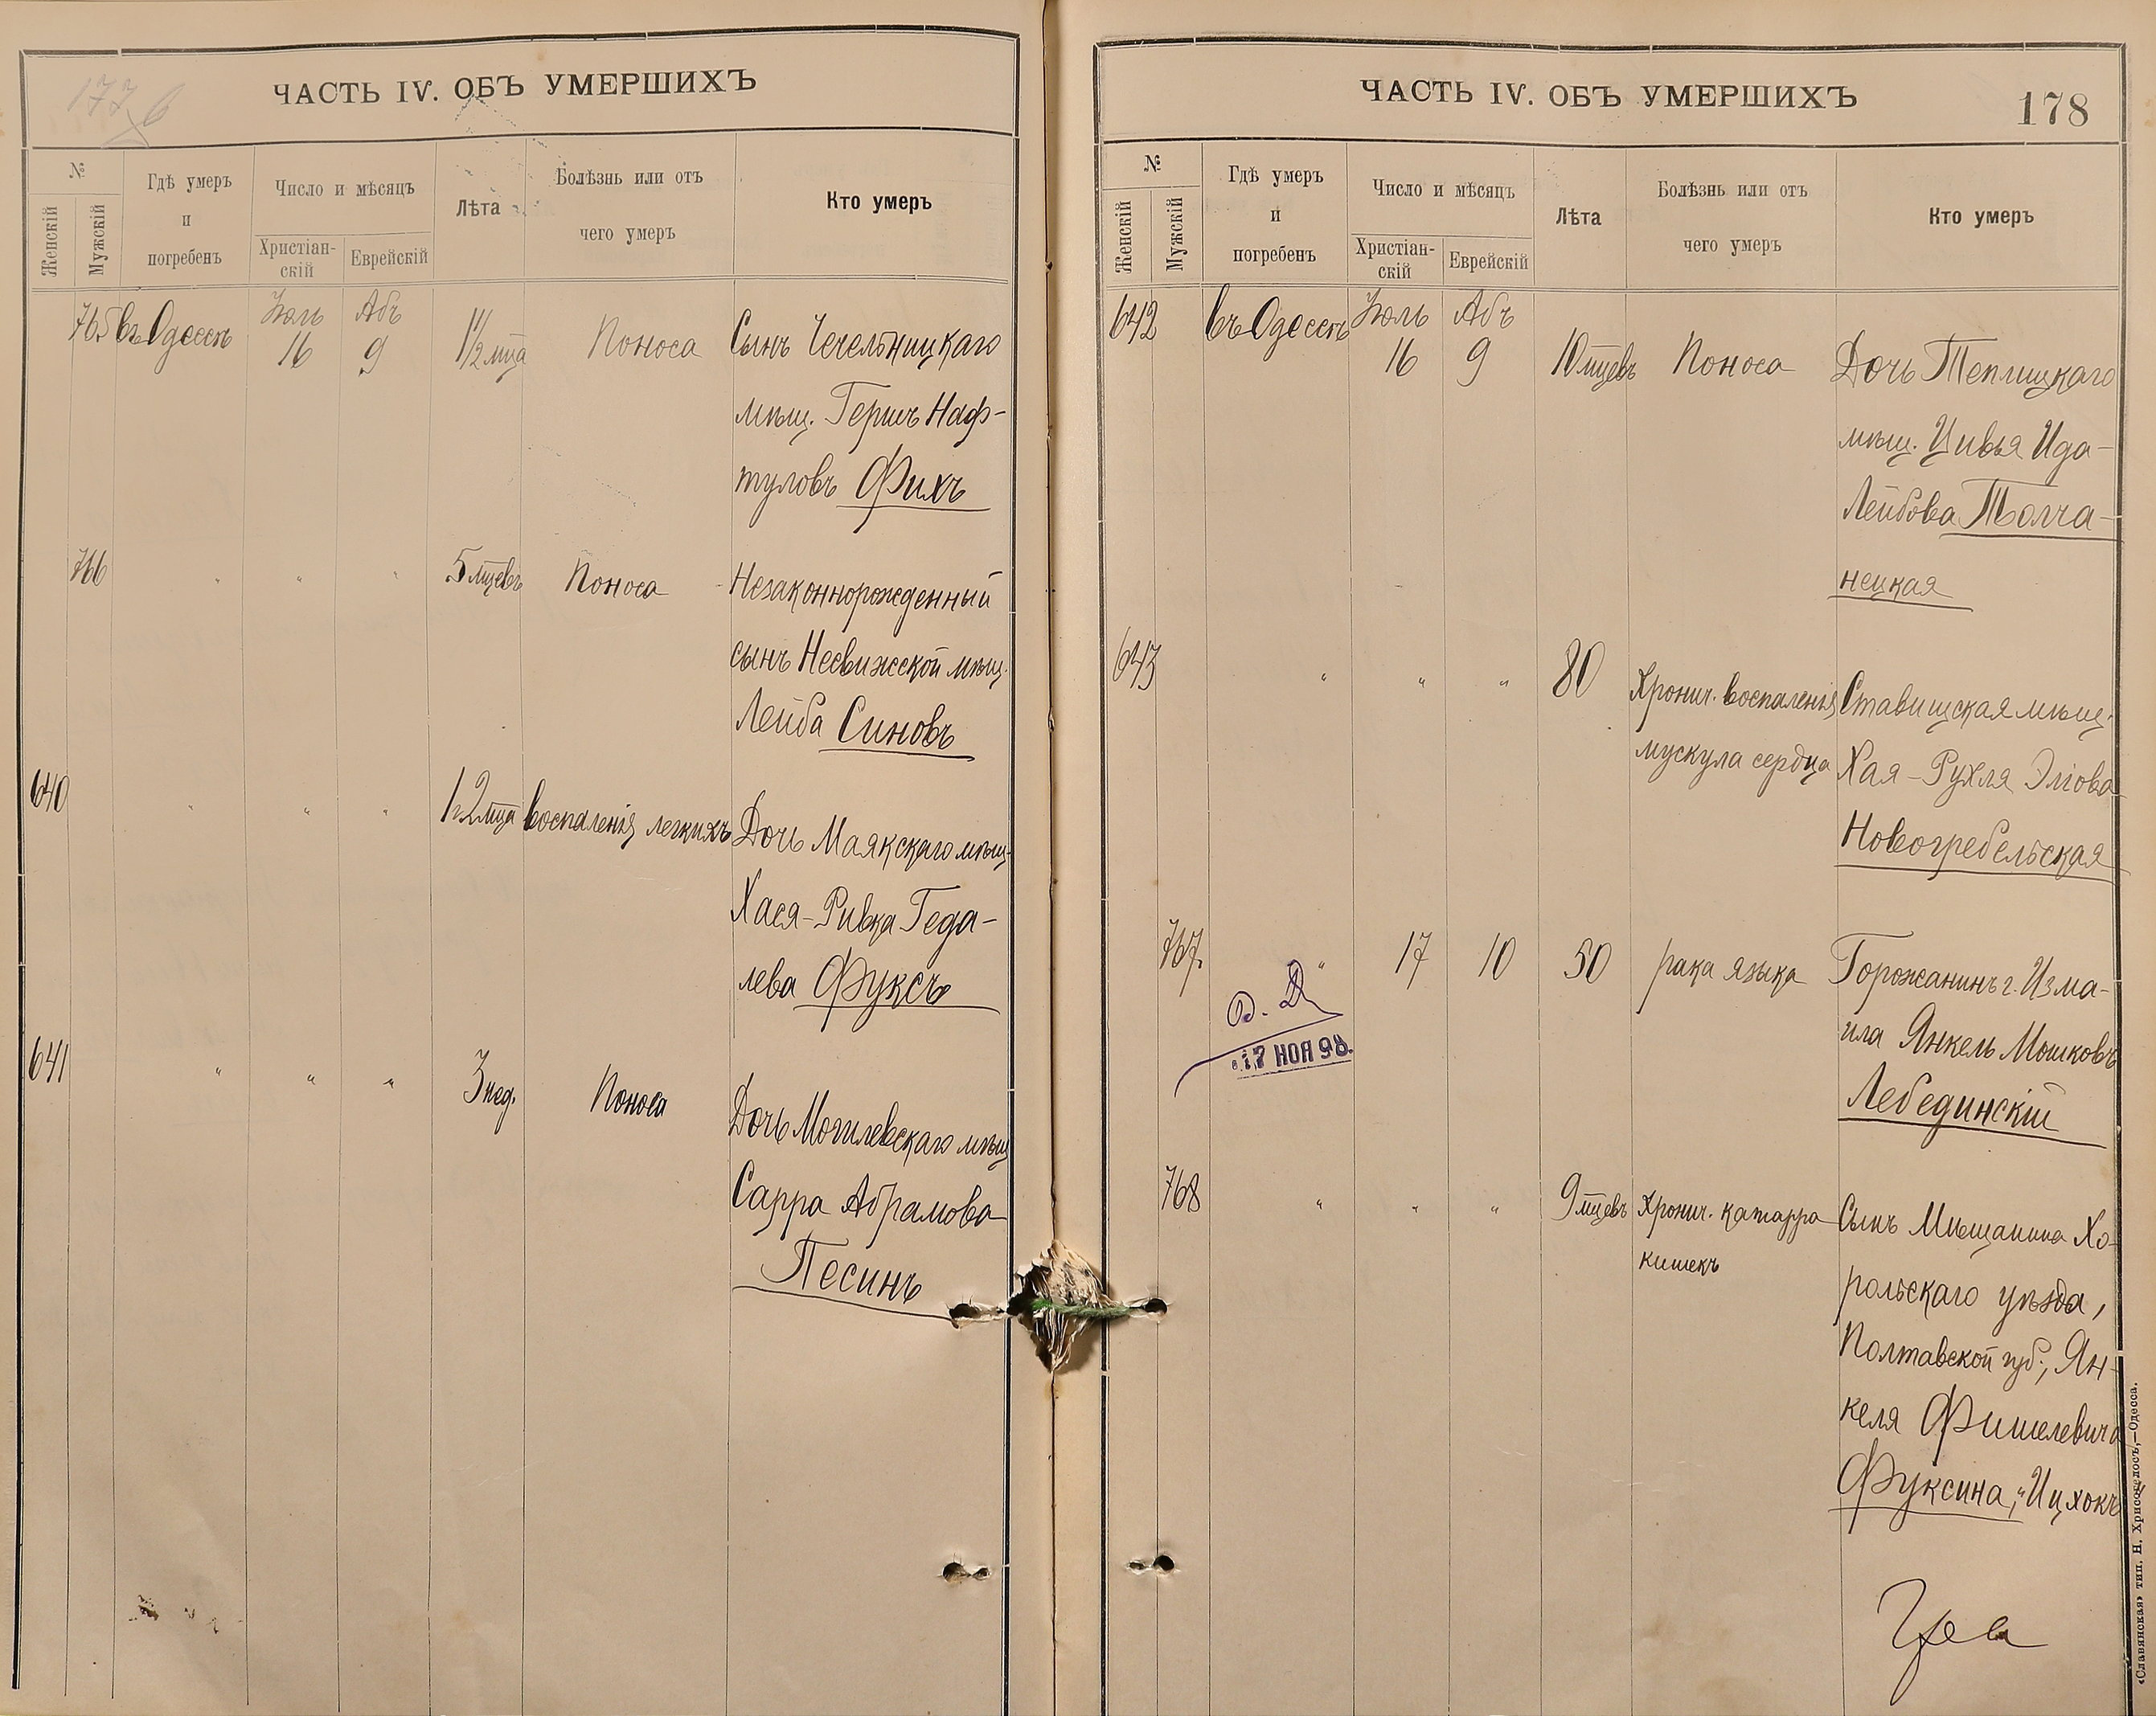 ЧАСТЬ IV. ОБЪ УМЕРШИХЪ
№
Женскій
Мужскій
Гдѣ умеръ
и
погребенъ
Число и мѣсяцъ
Христіан-
скій
Еврейскій
Лѣта
Болѣзнь или отъ
чего умеръ
Кто умеръ
765 въ Одессѣ Іюль 16 Абъ 9 1 1/2 мца Поноса Сынъ Чечельницкаго
мѣщ. Гершъ Наф-
туловъ Фихъ
766 " " " 5 мцевъ Поноса Незаконнорожденный
сынъ Несвижской мѣщ.
Лейба Синовъ
640 " " " 1 1/2 мца воспаленія легкихъ Дочь Маякскаго мѣщ.
Хася-Ривка Геда-
лева Фуксъ
641 " " " 3 нед. Поноса Дочь Могилевскаго мѣщ.
Сарра Абрамова
Песинъ
ЧАСТЬ IV. ОБЪ УМЕРШИХЪ
178
№
Женскій
Мужскій
Гдѣ умеръ
и
погребенъ
Число и мѣсяцъ
Христіан-
скій
Еврейскій
Лѣта
Болѣзнь или отъ
чего умеръ
Кто умеръ
642 въ Одессѣ Іюль 16 Абъ 9 10 мцевъ Поноса Дочь Теплицкаго
мѣщ. Цивья Ида-
Лейбова Толча-
нецкая
643 " " " 80 Хронич. воспаленія Ставищская мѣщ.
мускула сердца Хая-Рухля Эліова
Новогребельская
767. " 17 10 50 рака языка Горожанинъ г. Изма-
ила Янкель Мошковъ
Лебединскій
17 НОЯ 98.
768 " " " 9 мцевъ Хронич. катарра Сынъ Мѣщанина Хо-
кишекъ
рольскаго уѣзда,
Полтавской губ., Ян-
келя Фишелевича
Фуксина, "Ицхокъ
«Славянская» тип. Н. Хрисогелосъ,—Одесса.